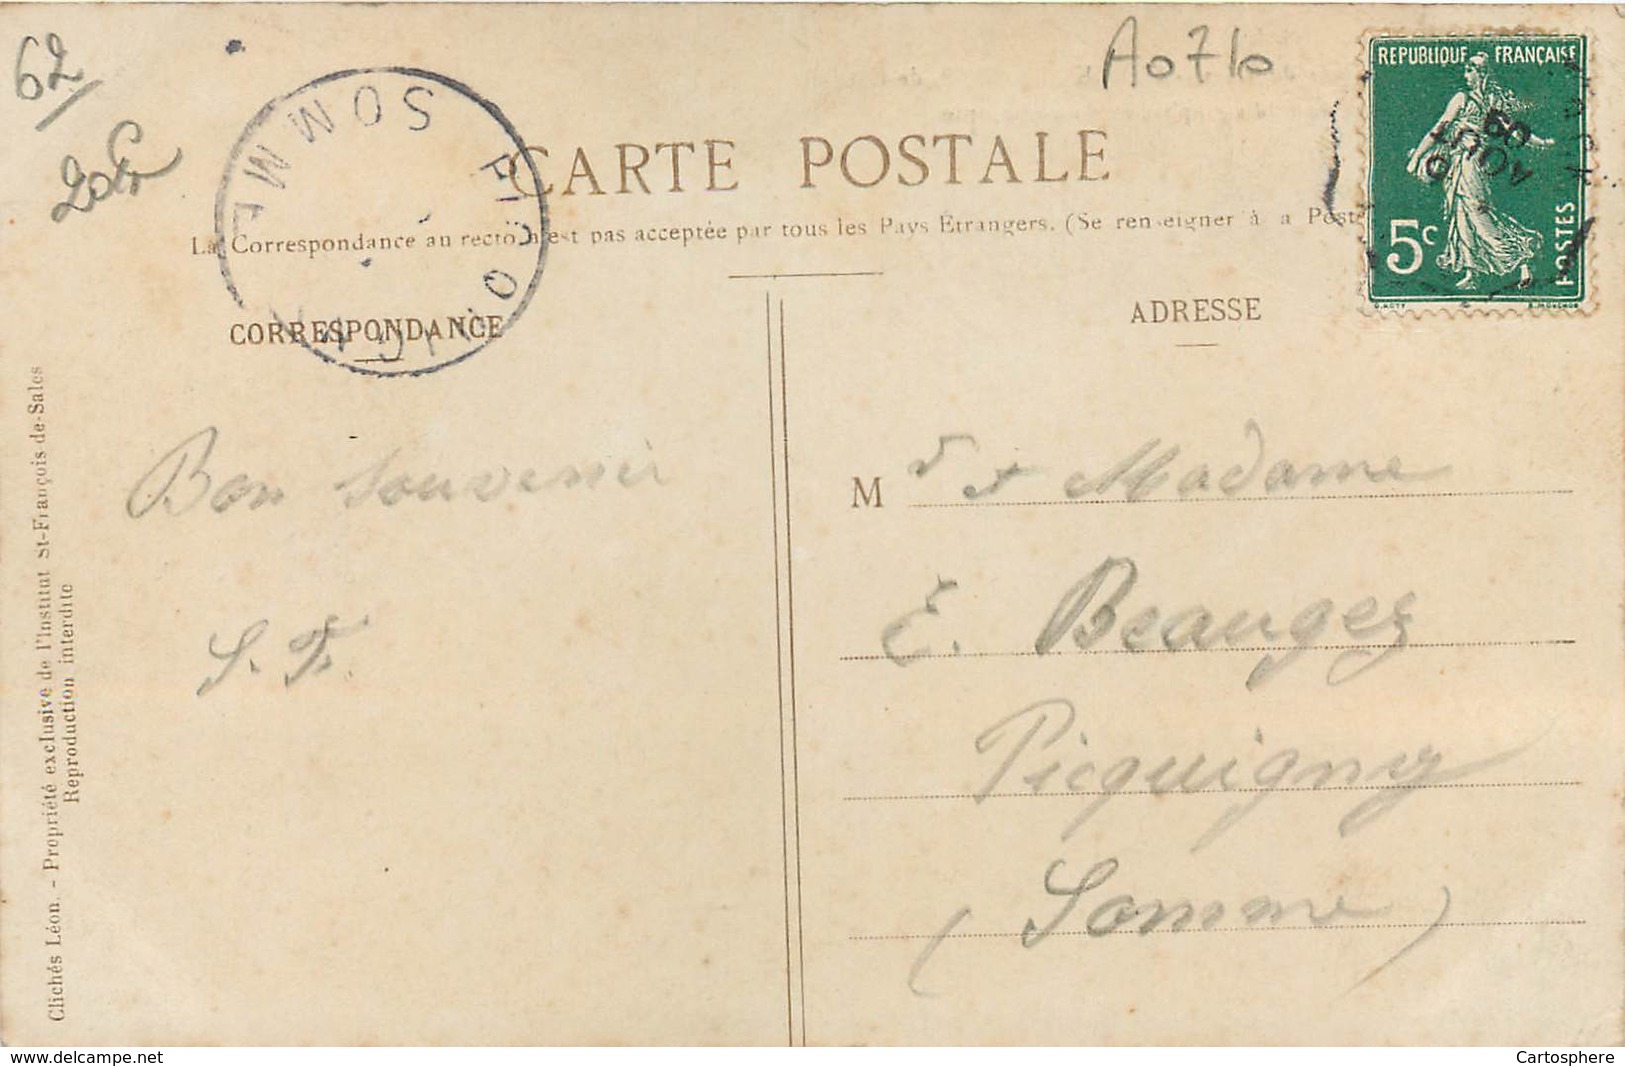 62
20f
A0710
REPUBLIQUE FRANÇAISE
POSTES
5c
AOUT
09
CARTE POSTALE
La Correspondance au recto n'est pas acceptée par tous les Pays Étrangers. (Se renseigner à la Poste
PICQUIGNY
SOMME
CORRESPONDANCE
ADRESSE
Bon souvenir
S. F.
M r et Madame
E. Beauger
Picquigny
(Somme)
Clichés Léon. - Propriété exclusive de l'Institut St-François-de-Sales
Reproduction interdite
www.delcampe.net
Cartosphere